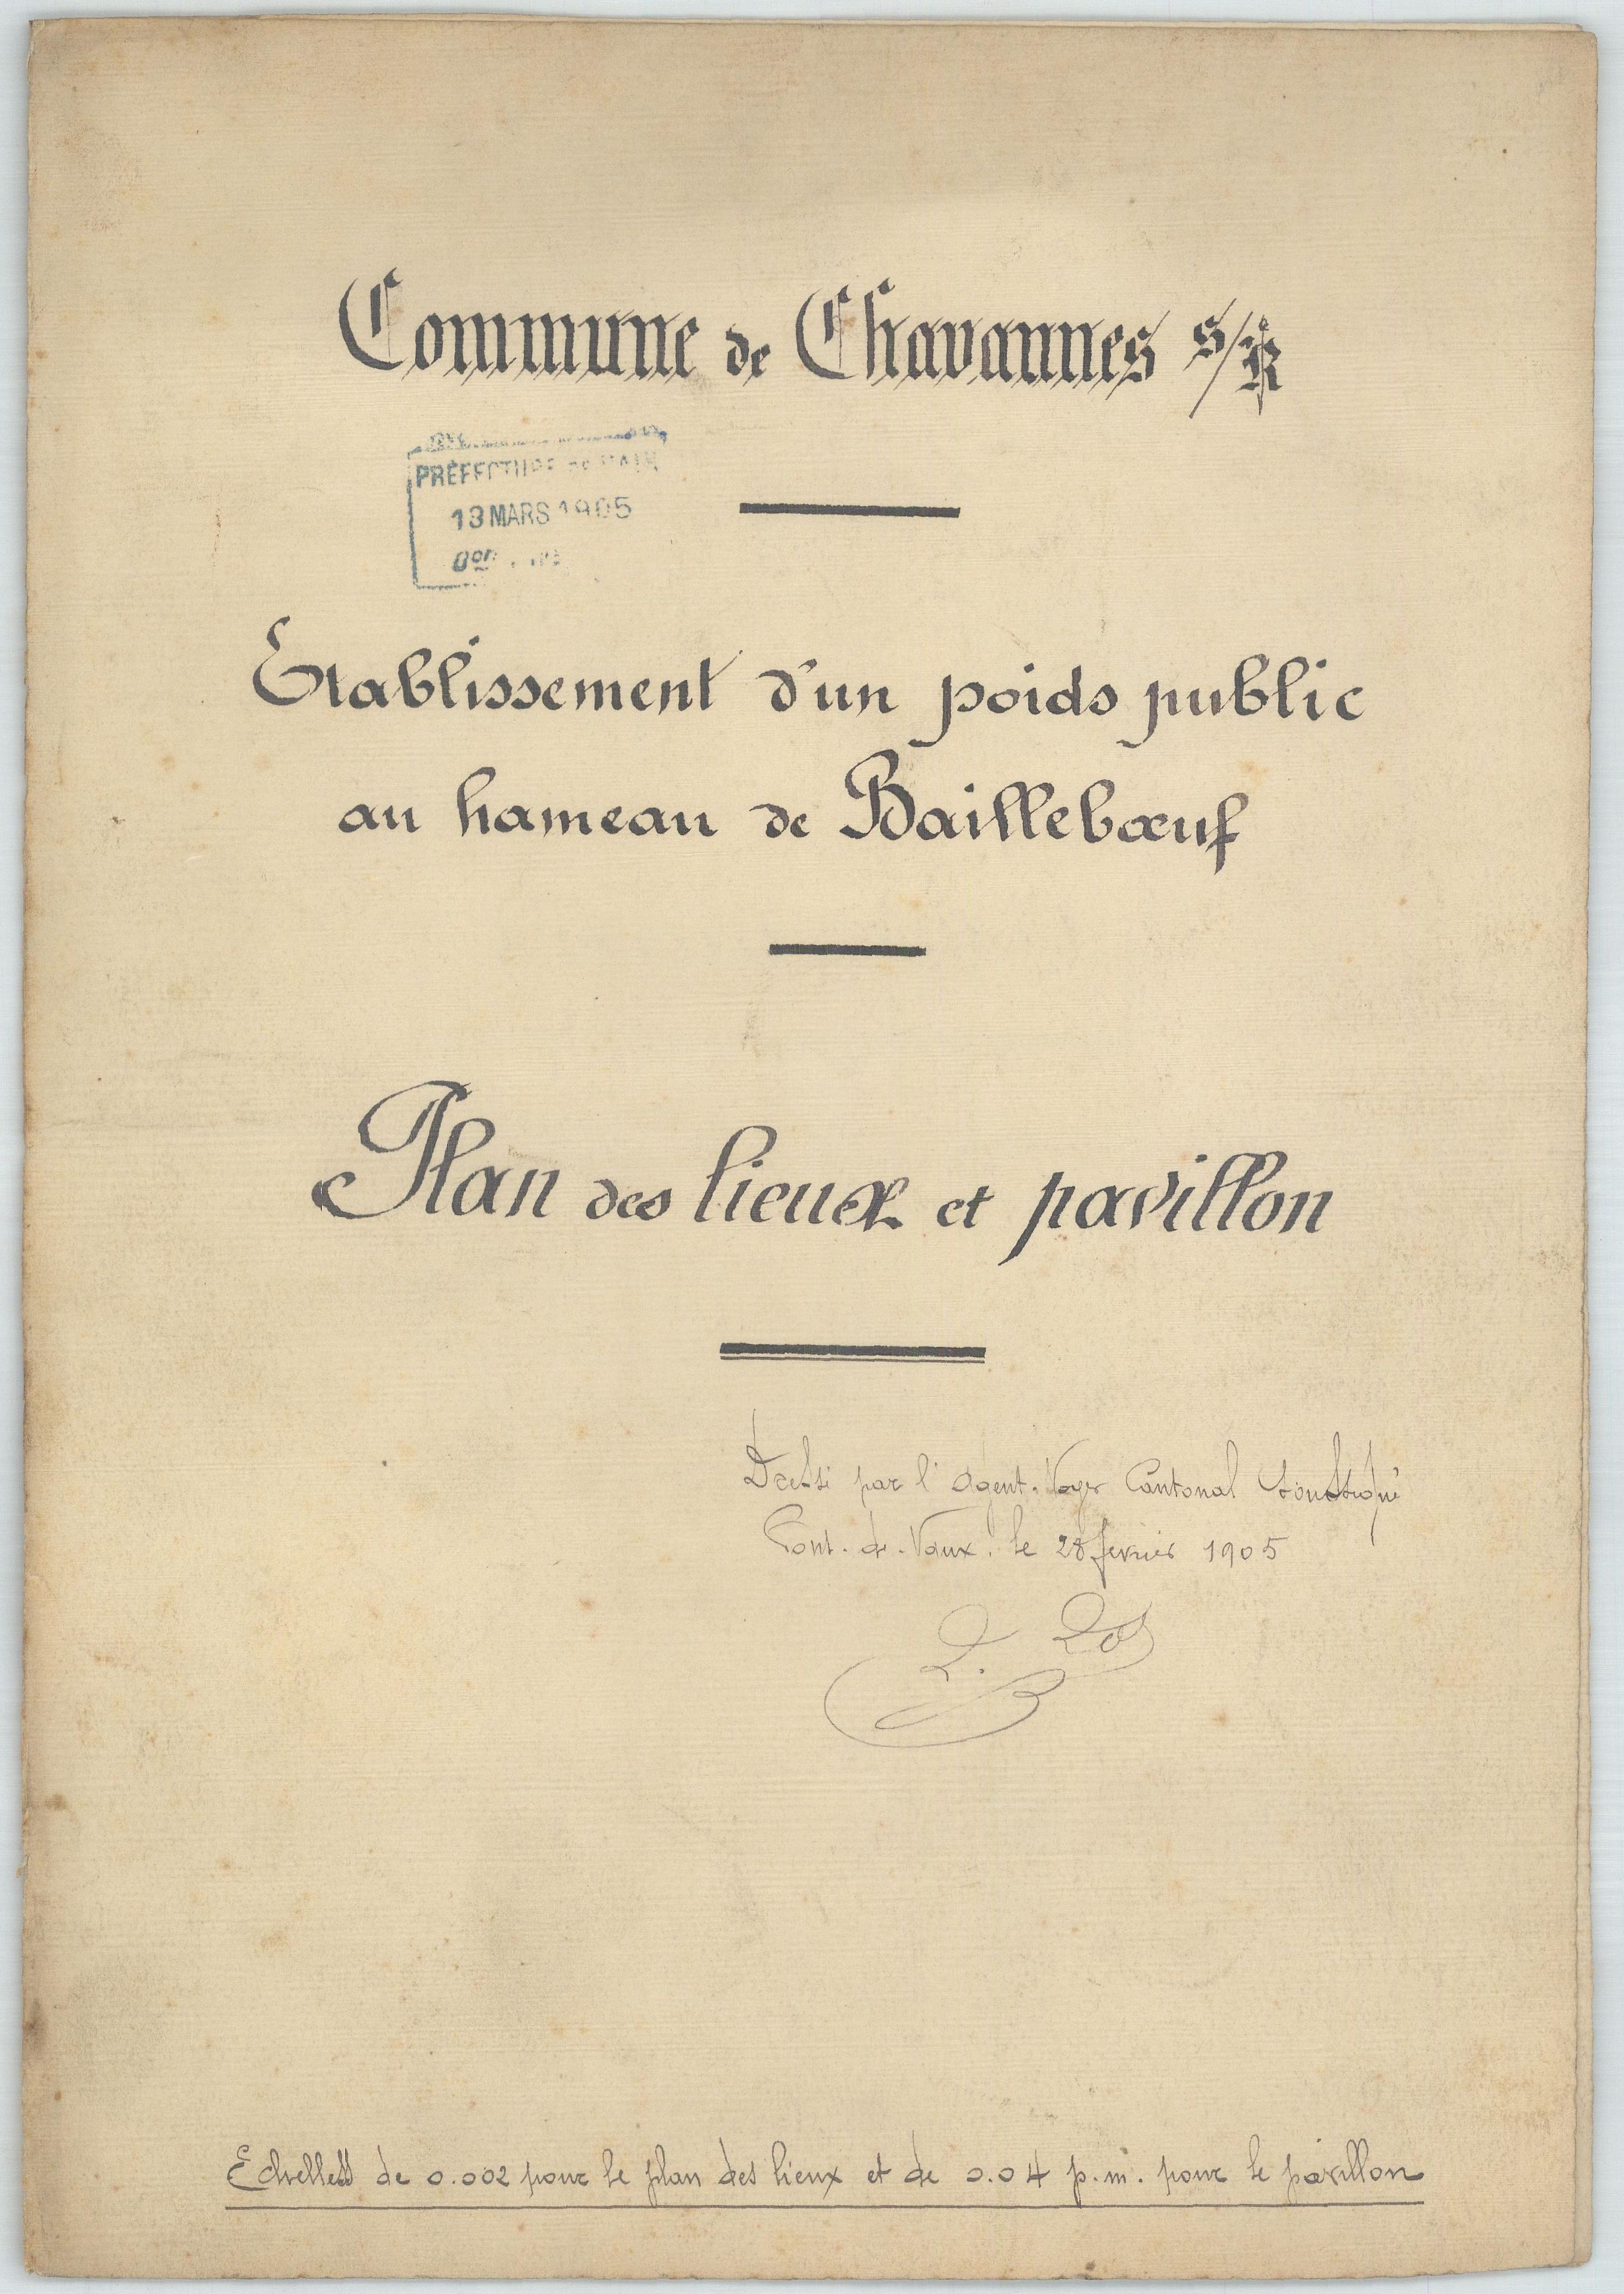 Commune de Chavannes s/R
PRÉFECTURE DE L'AIN
13 MARS 1905
Etablissement d'un poids public
au hameau de Bailleboeuf
Plan des lieux et pavillon
Dressé par l'Agent-Voyer Cantonal soussigné
Pont-de-Vaux, le 28 février 1905
Echelles de 0.002 pour le plan des lieux et de 0.04 p.m. pour le pavillon